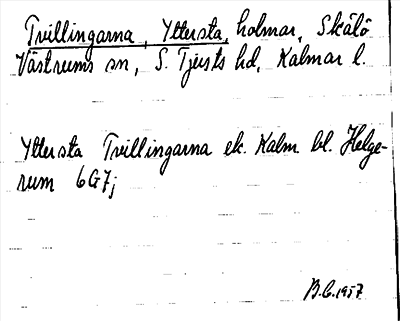 Tvillingarna, Yttersta, holmar, Skälö
Västrums sn, S. Tjusts hd, Kalmar l.
Yttersta Tvillingarna ek. Kalm bl. Helge-
rum 6G7j
B.C. 1957